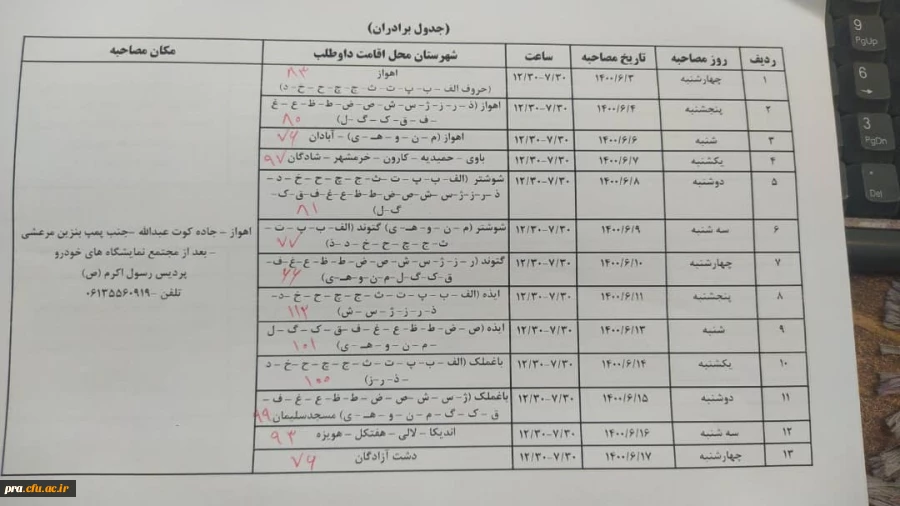 (جدول برادران)
ردیف روز مصاحبه تاریخ مصاحبه ساعت شهرستان محل اقامت داوطلب مکان مصاحبه
۱ چهارشنبه ۱۴۰۰/۶/۳ ۱۲/۳۰-۷/۳۰ اهواز ۸۳
(حروف الف – ب – پ – ت – ث – ج – چ – ح – خ – د)
۲ پنجشنبه ۱۴۰۰/۶/۴ ۱۲/۳۰-۷/۳۰ اهواز (ذ – ر – ز – ژ – س – ش – ص – ض – ط – ظ – ع – غ
– ف – ق – ک – گ – ل) ۸۰
۳ شنبه ۱۴۰۰/۶/۶ ۱۲/۳۰-۷/۳۰ اهواز (م – ن – و – هـ – ی) – آبادان ۷۶
۴ یکشنبه ۱۴۰۰/۶/۷ ۱۲/۳۰-۷/۳۰ باوی – حمیدیه – کارون – خرمشهر – شادگان ۹۷
۵ دوشنبه ۱۴۰۰/۶/۸ ۱۲/۳۰-۷/۳۰ شوشتر (الف – ب – پ – ت – ث – ج – چ – ح – خ – د –
ذ – ر – ز – ژ – س – ش – ص – ض – ط – ظ – ع – غ – ف – ق – ک –
گ – ل) ۸۱
۶ سه شنبه ۱۴۰۰/۶/۹ ۱۲/۳۰-۷/۳۰ شوشتر (م – ن – و – هـ – ی) گتوند (الف – ب – پ – ت –
ث – ج – چ – ح – خ – د – ذ) ۷۷
۷ چهارشنبه ۱۴۰۰/۶/۱۰ ۱۲/۳۰-۷/۳۰ گتوند (ر – ز – ژ – س – ش – ص – ض – ط – ظ – ع – غ – ف –
ق – ک – گ – ل – م – ن – و – هـ – ی)
۸ پنجشنبه ۱۴۰۰/۶/۱۱ ۱۲/۳۰-۷/۳۰ ایذه (الف – ب – پ – ت – ث – ج – چ – ح – خ – د –
ذ – ر – ز – ژ – س – ش) ۱۱۲
۹ شنبه ۱۴۰۰/۶/۱۳ ۱۲/۳۰-۷/۳۰ ایذه (ص – ض – ط – ظ – ع – غ – ف – ق – ک – گ – ل
– م – ن – و – هـ – ی) ۱۰۱
۱۰ یکشنبه ۱۴۰۰/۶/۱۴ ۱۲/۳۰-۷/۳۰ باغملک (الف – ب – پ – ت – ث – ج – چ – ح – خ – د
– ذ – ر – ز) ۱۰۰
۱۱ دوشنبه ۱۴۰۰/۶/۱۵ ۱۲/۳۰-۷/۳۰ باغملک (ژ – س – ش – ص – ض – ط – ظ – ع – غ – ف –
ق – ک – گ – م – ن – و – هـ – ی) مسجدسلیمان ۹۹
۱۲ سه شنبه ۱۴۰۰/۶/۱۶ ۱۲/۳۰-۷/۳۰ اندیکا – لالی – هفتکل – هویزه ۹۳
۱۳ چهارشنبه ۱۴۰۰/۶/۱۷ ۱۲/۳۰-۷/۳۰ دشت آزادگان ۷۶
اهواز – جاده کوت عبدالله – جنب پمپ بنزین مرعشی
– بعد از مجتمع نمایشگاه های خودرو
پردیس رسول اکرم (ص)
تلفن – ۰۶۱۳۵۵۶۰۹۱۹
9
PgUp
6
3
PgDn
.
Del
pra.cfu.ac.ir